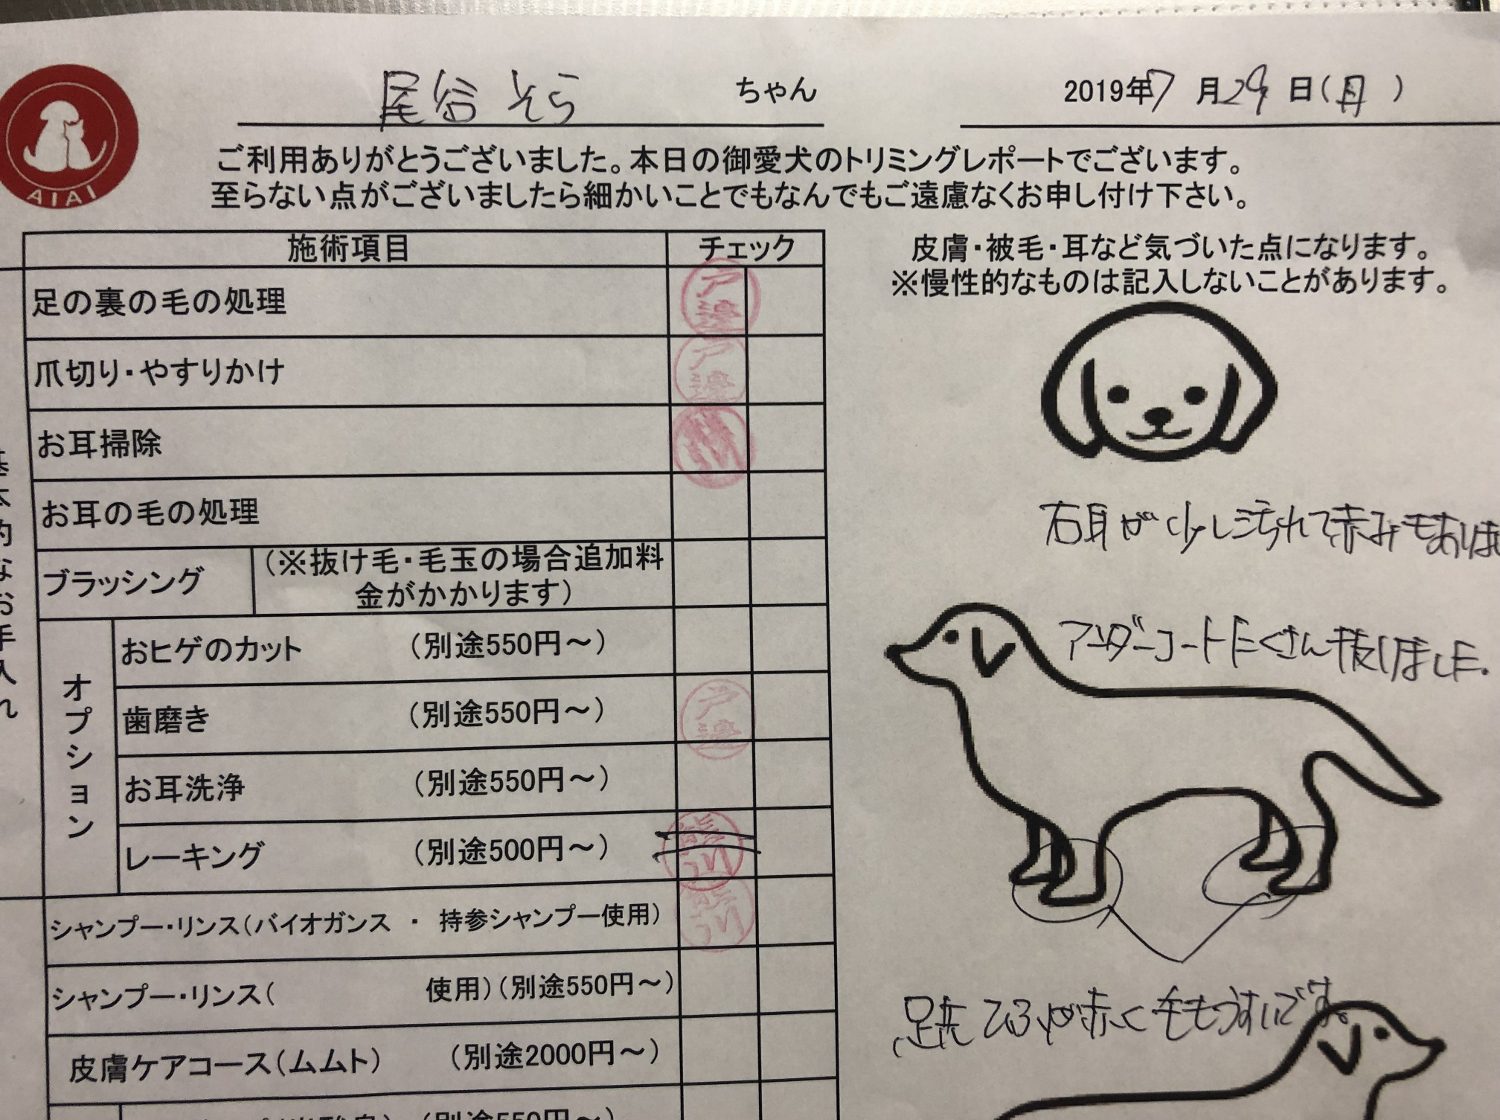 尾谷 そら ちゃん
2019年7月29日(月)
AIAI
ご利用ありがとうございました。本日の御愛犬のトリミングレポートでございます。
至らない点がございましたら細かいことでもなんでもご遠慮なくお申し付け下さい。
施術項目 チェック
足の裏の毛の処理 戸邊
爪切り・やすりかけ 戸邊
お耳掃除
お耳の毛の処理
ブラッシング (※抜け毛・毛玉の場合追加料
金がかかります)
基本的なお手入れ
オプション
おヒゲのカット (別途550円~)
歯磨き (別途550円~) 戸邊
お耳洗浄 (別途550円~)
レーキング (別途500円~)
シャンプー・リンス(バイオガンス ・ 持参シャンプー使用)
シャンプー・リンス( 使用)(別途550円~)
皮膚ケアコース(ムムト) (別途2000円~)
(別途550円~)
皮膚・被毛・耳など気づいた点になります。
※慢性的なものは記入しないことがあります。
右耳が少し汚れて赤みもありま
アンダーコートたくさん抜けました.
足先 が赤く毛もうすいです。